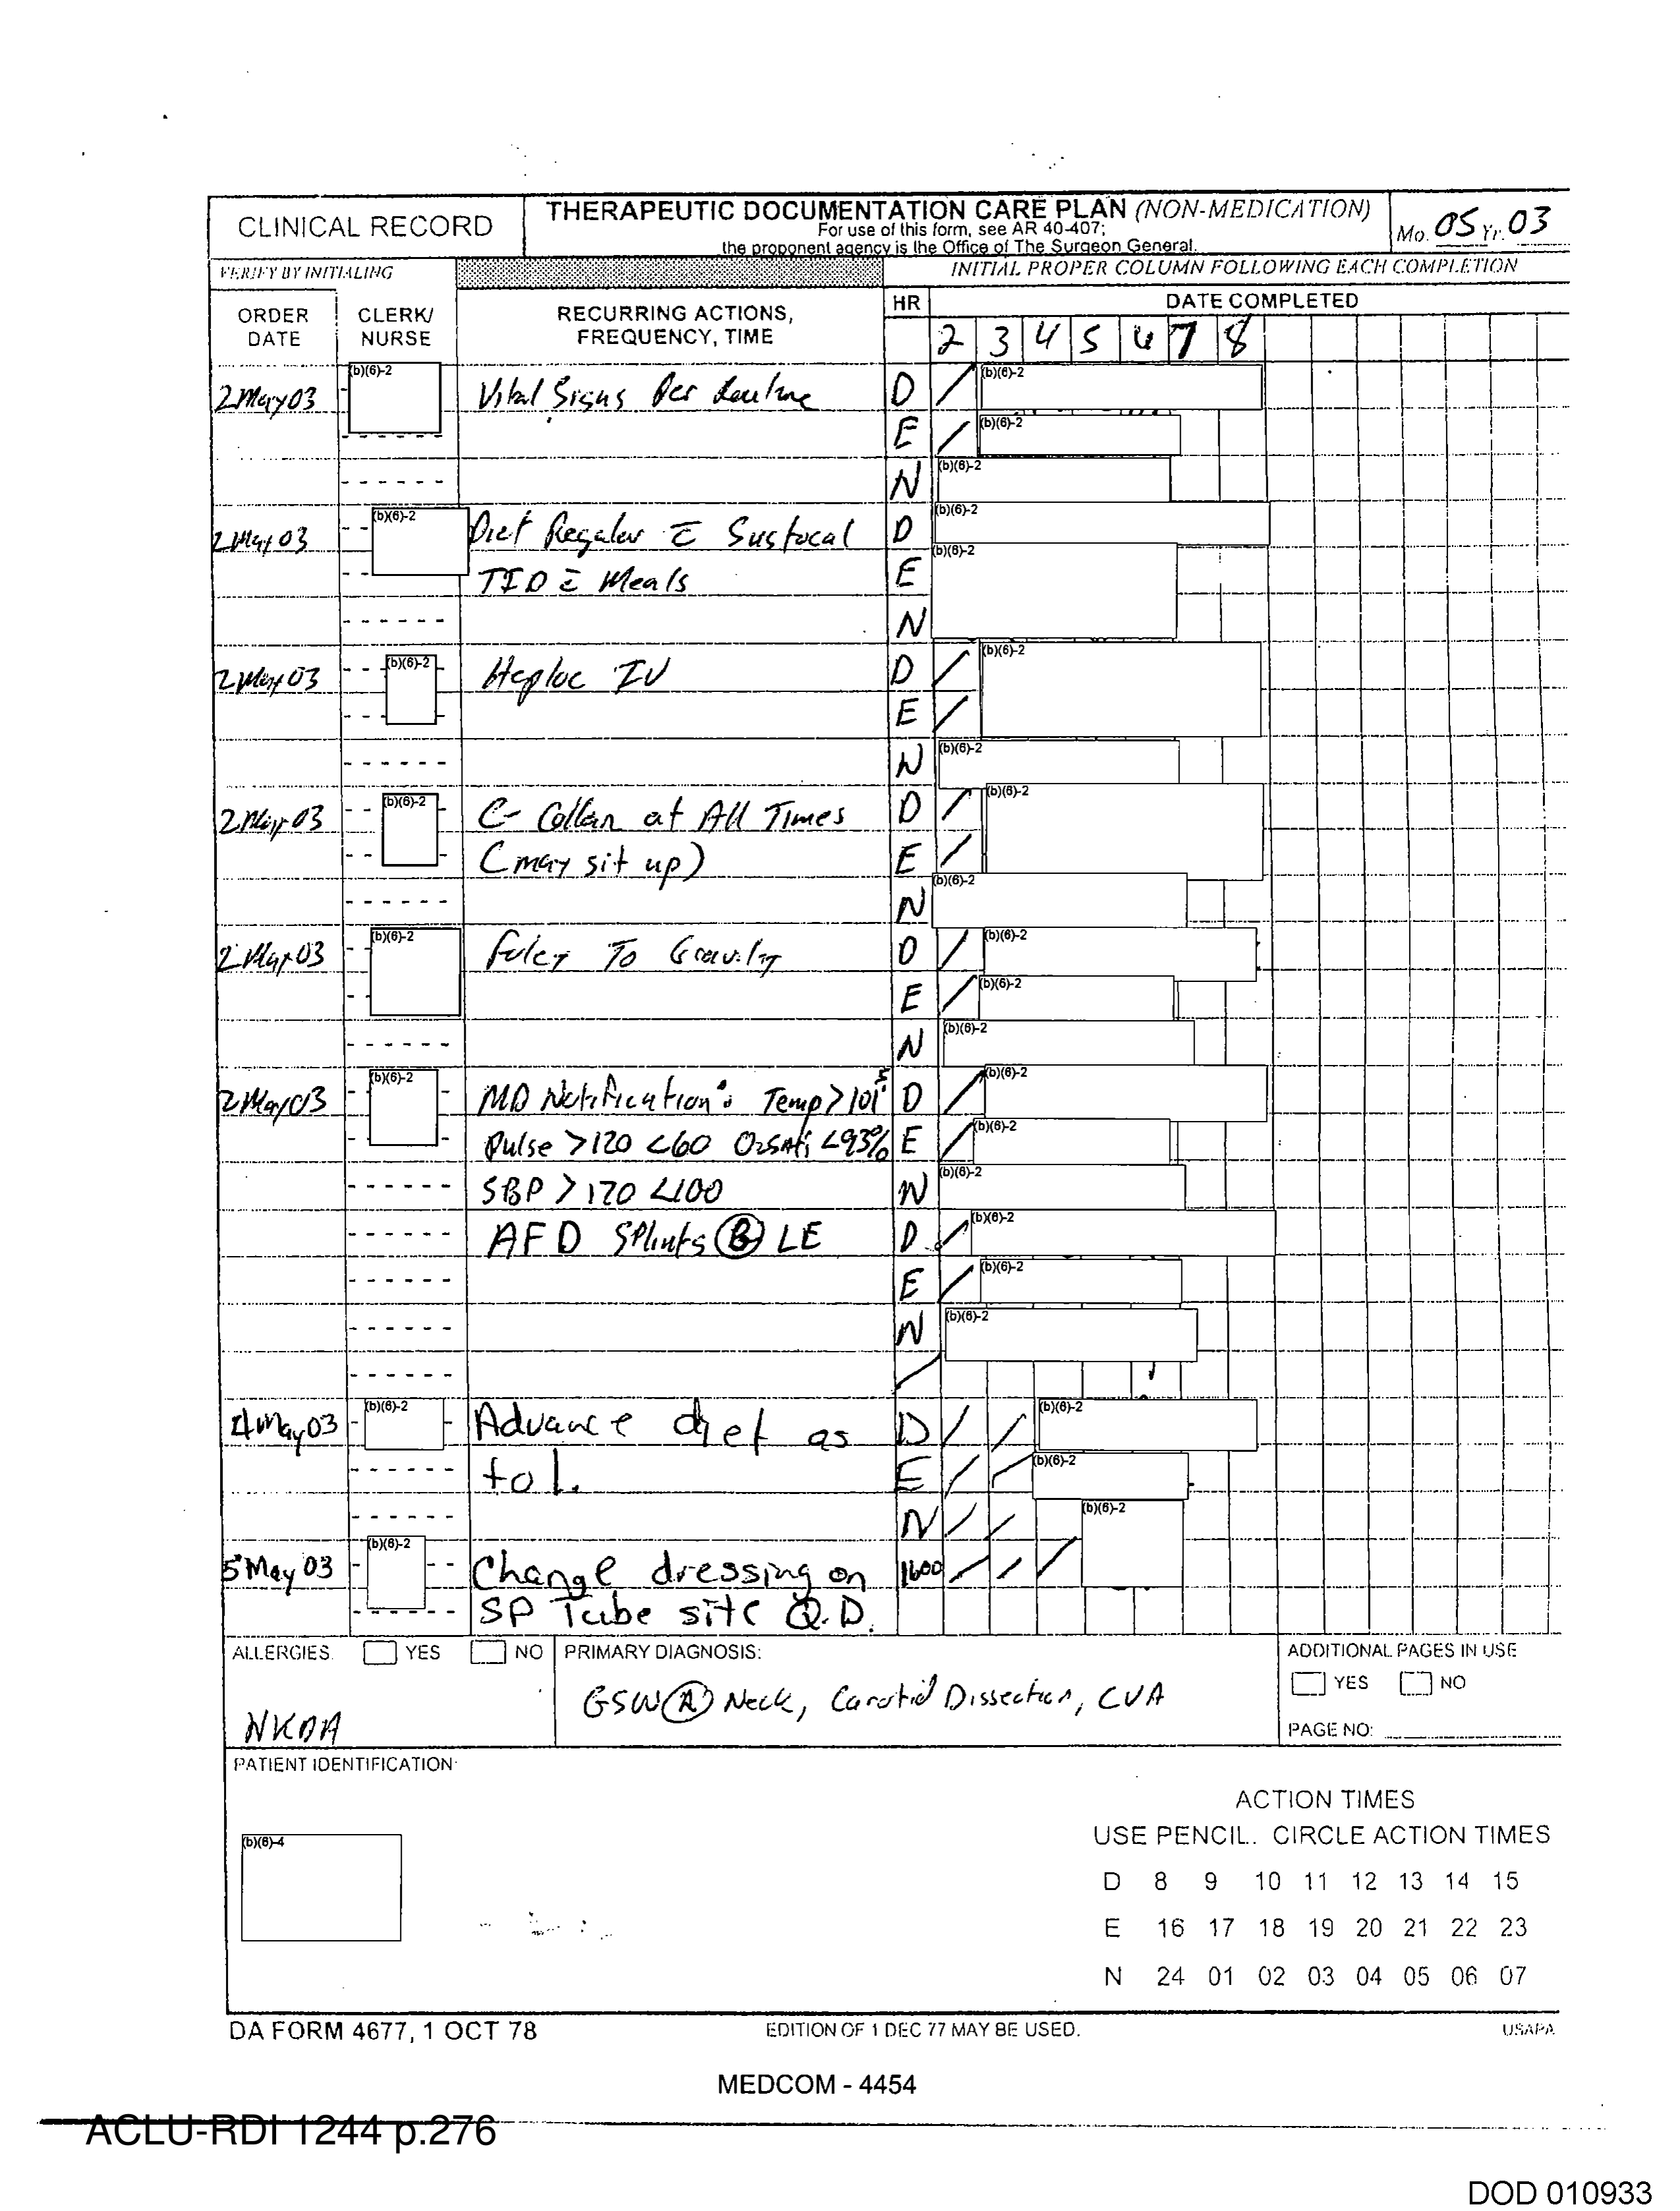 CLINICAL RECORD
THERAPEUTIC DOCUMENTATION CARE PLAN (NON-MEDICATION)
For use of this form, see AR 40-407;
the proponent agency is the Office of The Surgeon General.
Mo. 05 Yr. 03
VERIFY BY INITIALING
INITIAL PROPER COLUMN FOLLOWING EACH COMPLETION
ORDER DATE
CLERK/ NURSE
RECURRING ACTIONS, FREQUENCY, TIME
HR
DATE COMPLETED
2 3 4 5 6 7 8
2 May 03 (b)(6)-2 Vital Signs Per Routine D (b)(6)-2
E (b)(6)-2
N (b)(6)-2
2 May 03 (b)(6)-2 Diet Regular c̄ Sustocal D (b)(6)-2
TID c̄ Meals E (b)(6)-2
N
2 May 03 (b)(6)-2 Heploc IV D (b)(6)-2
E
N (b)(6)-2
2 May 03 (b)(6)-2 C-Collar at All Times D (b)(6)-2
(may sit up) E
N (b)(6)-2
2 May 03 (b)(6)-2 Foley To Gravity D (b)(6)-2
E (b)(6)-2
N (b)(6)-2
2 May 03 (b)(6)-2 MD Notification: Temp > 101.5 D (b)(6)-2
Pulse >120 <60 O2SAti <93% E (b)(6)-2
SBP > 170 <100 N (b)(6)-2
AFD Splints (B) LE D (b)(6)-2
E (b)(6)-2
N (b)(6)-2
4 May 03 (b)(6)-2 Advance diet as D (b)(6)-2
tol. E (b)(6)-2
N (b)(6)-2
5 May 03 (b)(6)-2 Change dressing on 1600
SP Tube site Q.D.
ALLERGIES. YES NO
NKDA
PRIMARY DIAGNOSIS:
GSW (R) Neck, Carotid Dissection, CVA
ADDITIONAL PAGES IN USE
YES NO
PAGE NO:
PATIENT IDENTIFICATION:
(b)(6)-4
ACTION TIMES
USE PENCIL. CIRCLE ACTION TIMES
D 8 9 10 11 12 13 14 15
E 16 17 18 19 20 21 22 23
N 24 01 02 03 04 05 06 07
DA FORM 4677, 1 OCT 78
EDITION OF 1 DEC 77 MAY BE USED.
USAPA
MEDCOM - 4454
ACLU-RDI 1244 p.276
DOD 010933